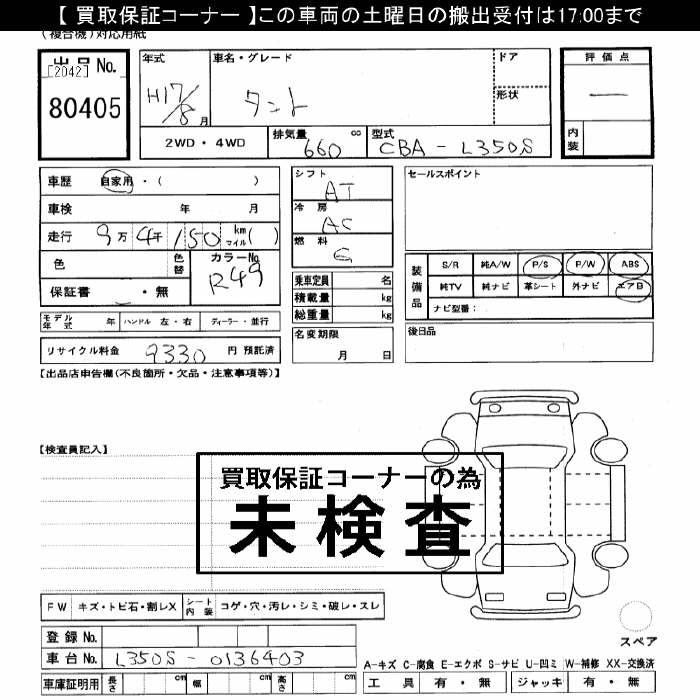 【 買取保証コーナー 】この車両の土曜日の搬出受付は17:00まで
(複合機)対応用紙
出品 No.
[2042]
80405
年式 H17/8月
車名・グレード タント
ドア
形状
評価点 —
内装
2WD・4WD
排気量 660 cc
型式 CBA - L350S
車歴 自家用・( )
車検 年 月
走行 9万 4千 150 km マイル( )
色
色替
カラーNo. R49
保証書 ・無
シフト AT
冷房 AC
燃料 G
乗車定員 名
積載量 kg
総重量 kg
セールスポイント
装備品
S/R 純A/W P/S P/W ABS
純TV 純ナビ 革シート 外ナビ エアB
ナビ型番:
モデル年式 年 ハンドル 左・右 ディーラー・並行
名変期限 月 日
後日品
リサイクル料金 9330 円 預託済
【出品店申告欄(不良箇所・欠品・注意事項等)】
【検査員記入】
買取保証コーナーの為
未検査
FW キズ・トビ石・割レX
シート内装 コゲ・穴・汚レ・シミ・破レ・スレ
登録 No.
車台 No. L350S - 0136403
車庫証明用 長さ cm 幅 cm 高さ cm
スペア
A-キズ C-腐食 E-エクボ S-サビ U-凹ミ W-補修 XX-交換済
工具 有・無 ジャッキ 有・無